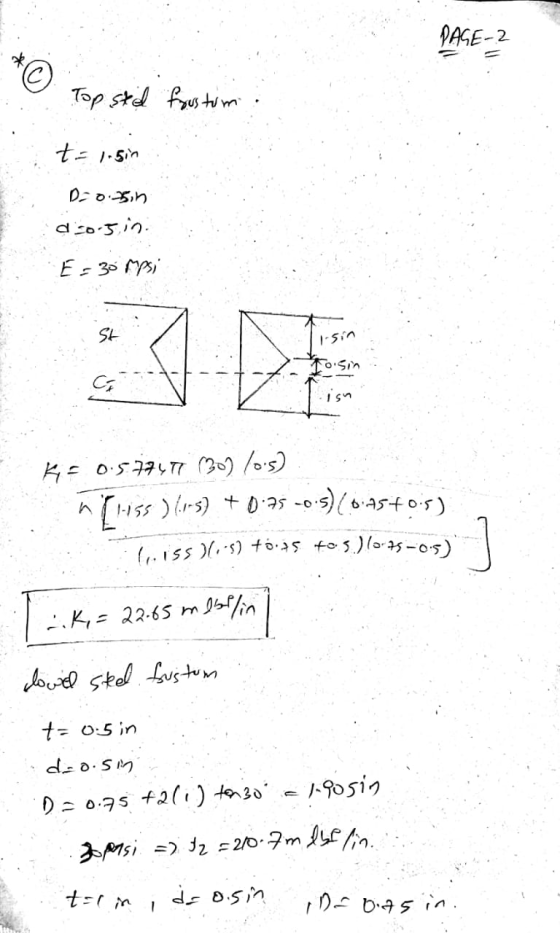 PAGE-2
* C
Top steel frustum.
t = 1.5in
D = 0.75in
d = 0.5 in.
E = 30 Mpsi
St
CI
1.5in
0.5in
1in
K₁ = 0.5774π (30) (0.5)
ln [1.155)(1.5) + 0.75 -0.5)(0.75+0.5)
(1.155)(1.5) +0.75 +0.5)(0.75-0.5) ]
∴ K₁ = 22.65 m lbf/in
lower steel frustum
t = 0.5 in
d = 0.5in
D = 0.75 +2(1) tan30° = 1.905in
30Mpsi => = 210.7m lbf/in.
t=1 in, d= 0.5in, D= 0.75 in.